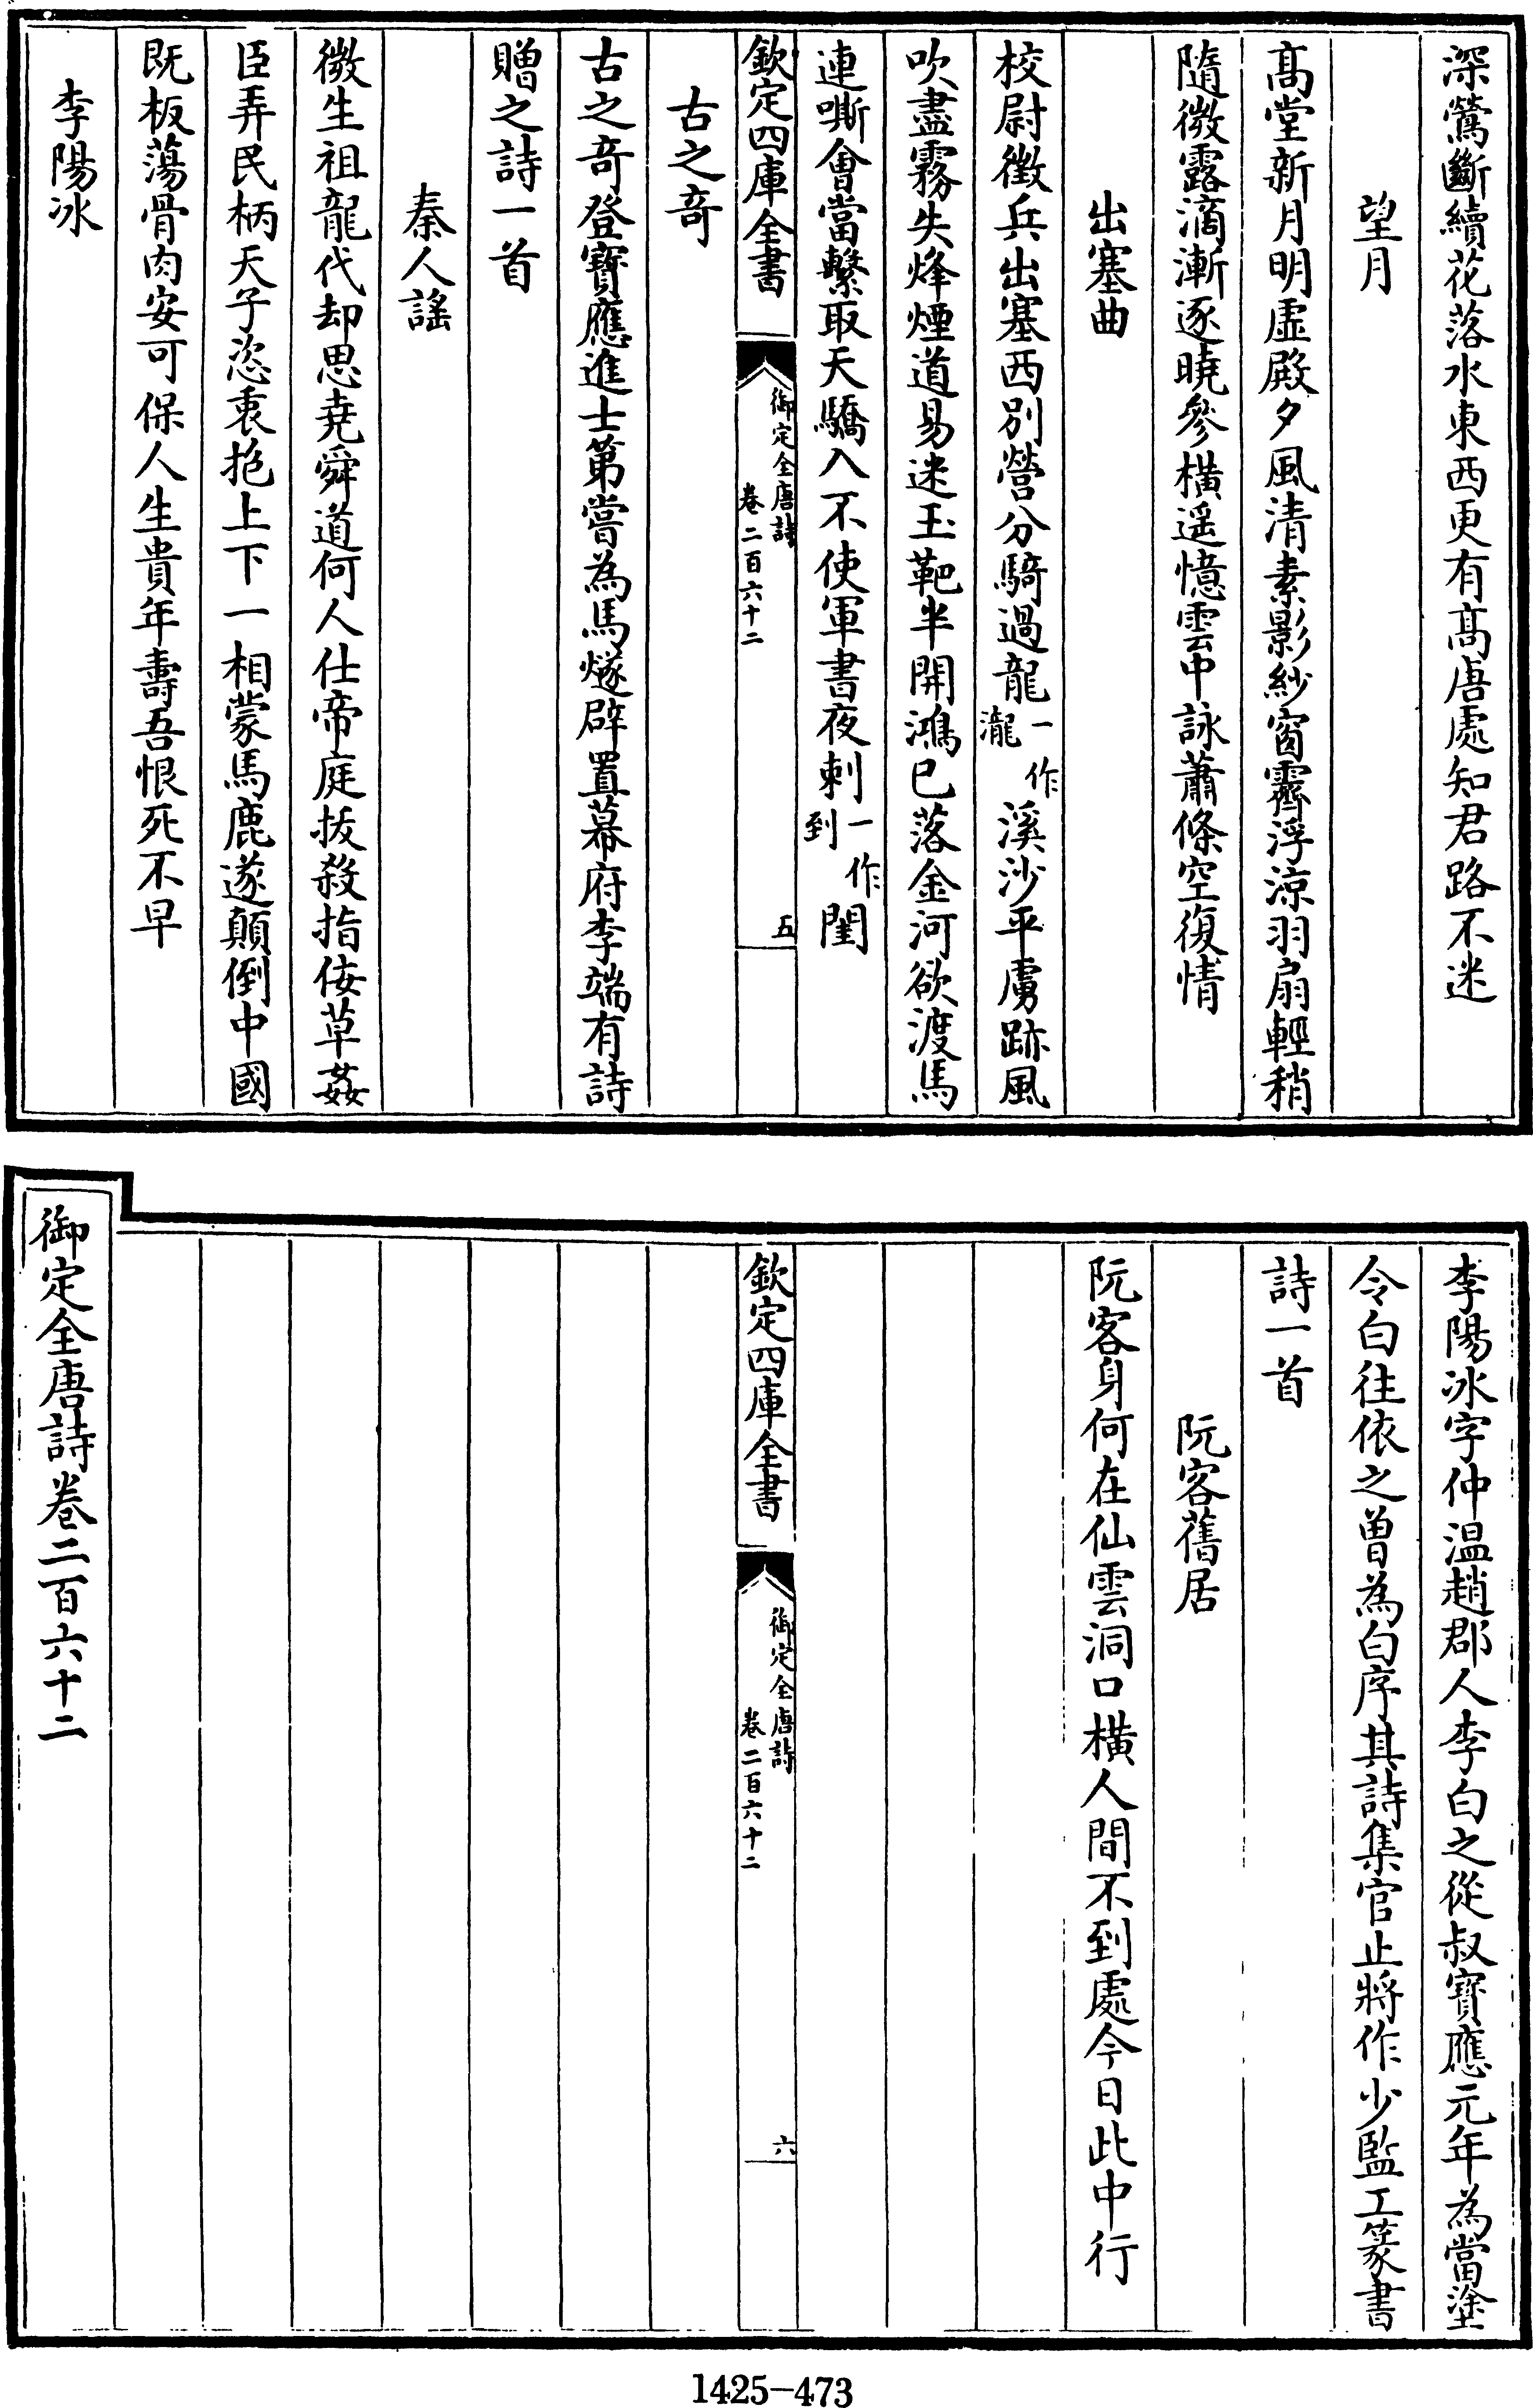 深鶯斷續花落水東西更有髙唐處知君路不迷
望月
髙堂新月明虛殿夕風清素影紗窗霽浮涼羽扇輕稍
隨微露滴漸逐曉參橫遥憶雲中詠蕭條空復情
出塞曲
校尉徵兵出塞西别營分騎過龍一作瀧溪沙平虜跡風
吹盡霧失烽煙道易迷玉靶半開鴻已落金河欲渡馬
連嘶會當繫取天驕入不使軍書夜刺一作到閨
欽定四庫全書
御定全唐詩
卷二百六十二
五
古之竒
古之竒登寳應進士第嘗為馬燧辟置幕府李端有詩
贈之詩一首
秦人謡
微生祖龍代却思堯舜道何人仕帝庭拔殺指佞草姦
臣弄民柄天子恣衷抱上下一相蒙馬鹿遂顛倒中國
既板蕩骨肉安可保人生貴年壽吾恨死不早
李陽冰
李陽冰字仲温趙郡人李白之從叔寳應元年為當塗
令白往依之曽為白序其詩集官止將作少監工篆書
詩一首
阮客舊居
阮客身何在仙雲洞口橫人間不到處今日此中行
欽定四庫全書
御定全唐詩
卷二百六十二
六
御定全唐詩卷二百六十二
1425-473